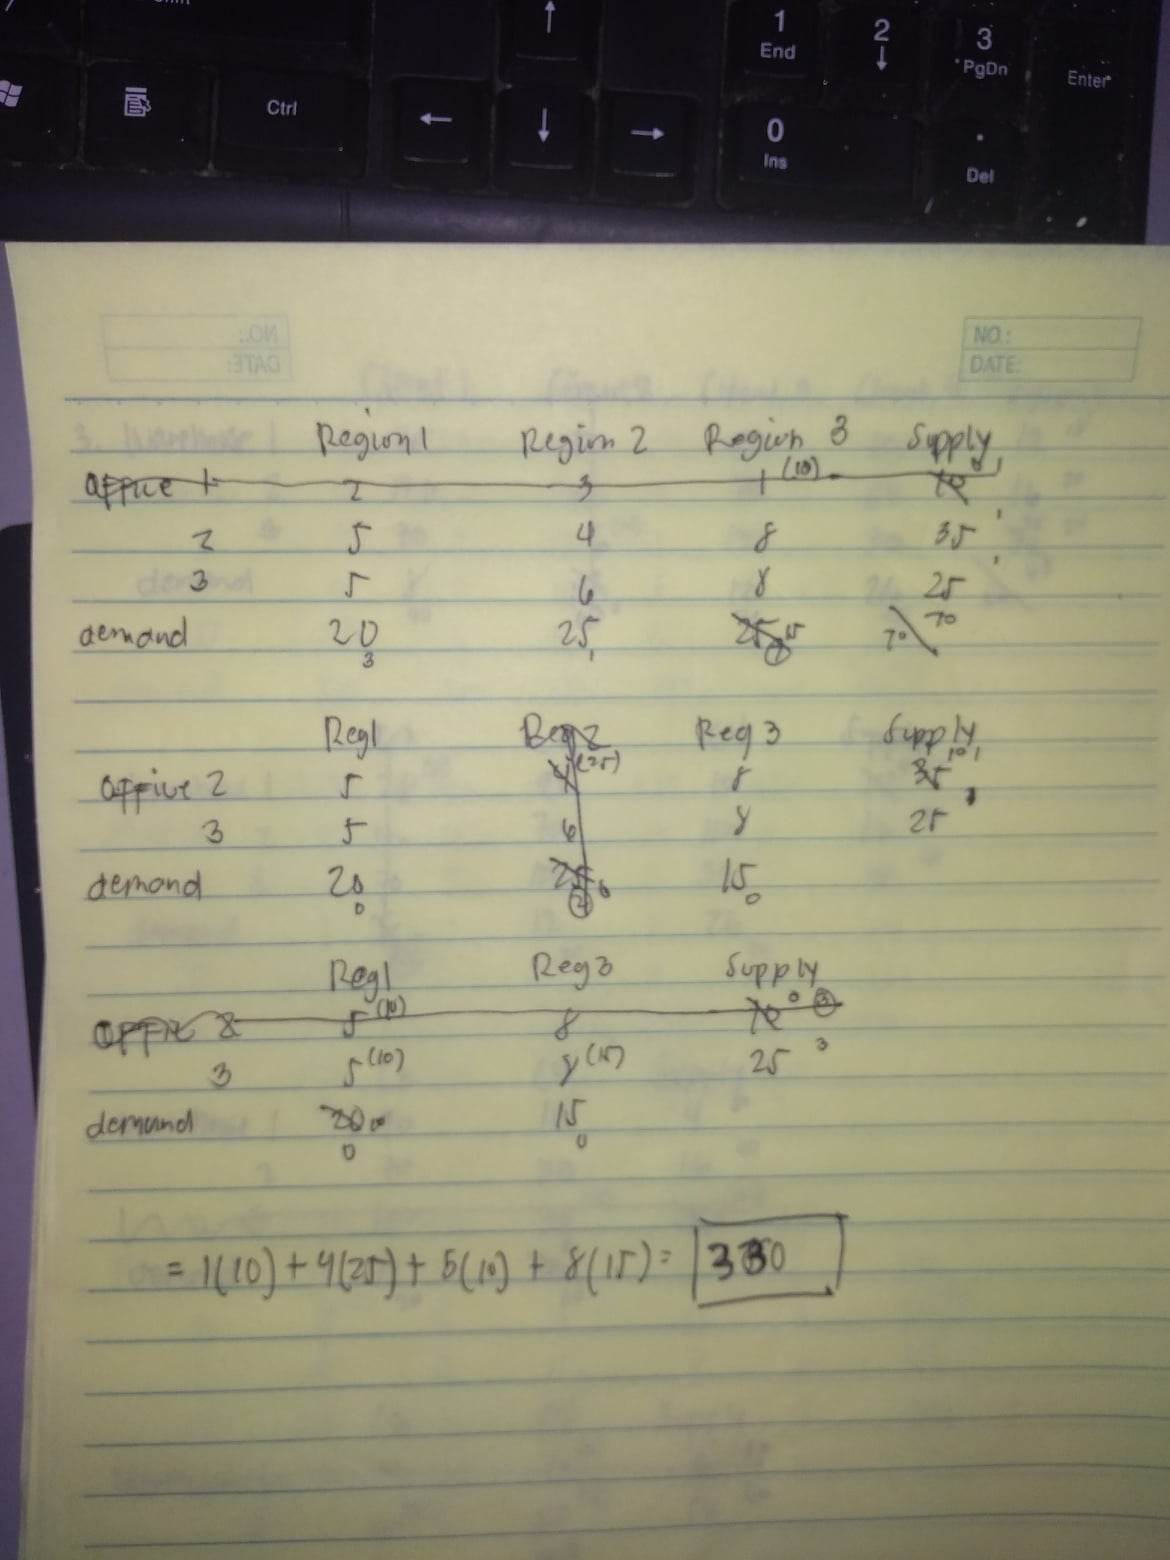 Ctrl
1
End
2
3
PgDn
Enter
0
Ins
.
Del
NO.:
DATE:
Region 1 Region 2 Region 3 Supply
office 1 2 3 1 (10) 10 0 1
2 5 4 8 35 1
3 5 6 8 25
demand 20 25 25 15 70 70
3 1 7
Reg 1 Reg 2 Reg 3 Supply
office 2 5 4 (25) 8 35 10 1
3 5 6 8 25
demand 20 25 0 15
0 2 0
Reg 1 Reg 3 Supply
office 2 5 (10) 8 10 0 3
3 5 (10) 8 (15) 25 3
demand 20 10 15
0 0
= 1(10) + 4(25) + 5(10) + 8(15) = 330